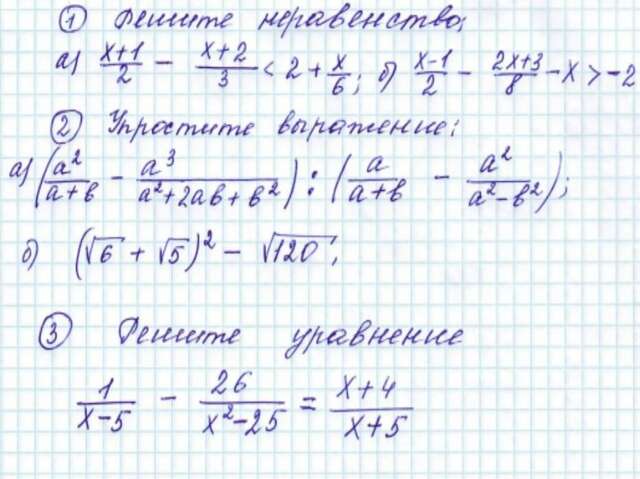 ① Решите неравенство:
а) (x+1)/2 - (x+2)/3 < 2 + x/6; б) (x-1)/2 - (2x+3)/8 - x > -2
② Упростите выражение:
а) (a²/(a+b) - a³/(a²+2ab+b²)) : (a/(a+b) - a²/(a²-b²));
б) (√6 + √5)² - √120;
③ Решите уравнение
1/(x-5) - 26/(x²-25) = (x+4)/(x+5)